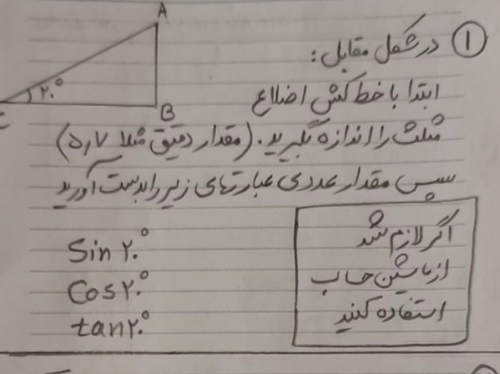 ① در شکل مقابل:
ابتدا با خط کش اضلاع
مثلث را اندازه بگیرید. (مقدار دقیق مثلا ۵٫۷)
سپس مقدار عددی عبارتهای زیر را بدست آورید
A
B
C
۲۰°
Sin ۲۰°
Cos ۲۰°
tan ۲۰°
اگر لازم شد
از ماشین حساب
استفاده کنید